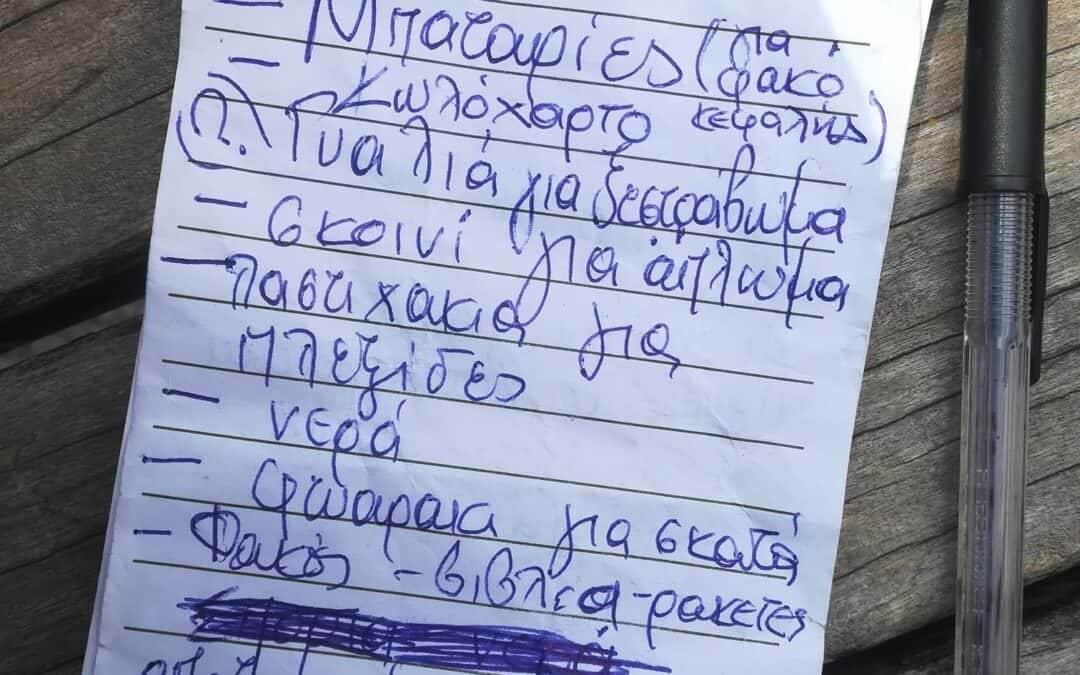 - Μπαταρίες (για φακό κεφαλής)
- Κωλόχαρτο
(?) Γυαλιά για ξεστράβωμα
- σκοινί για άπλωμα
- λαστιχακια για
πλεξίδες
- νερά
- φτυαρακια για σκατά
- Φακός - βιβλία - ρακετες